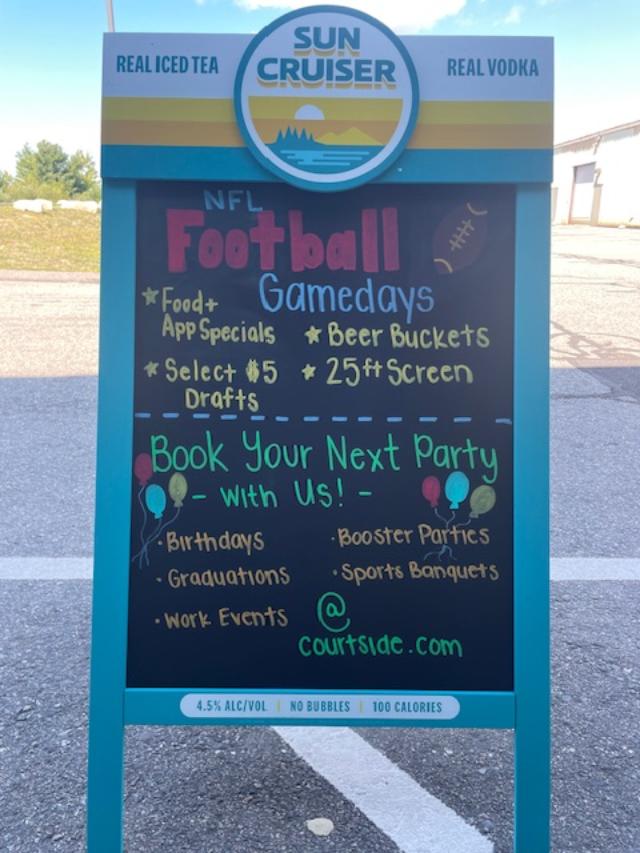 SUN
CRUISER
REAL ICED TEA
REAL VODKA
NFL
Football
Gamedays
Food +
App Specials
Beer Buckets
Select $5
Drafts
25ft Screen
Book Your Next Party
- with Us! -
· Birthdays
· Booster Parties
· Graduations
· Sports Banquets
· Work Events
@
courtside.com
4.5% ALC/VOL | NO BUBBLES | 100 CALORIES